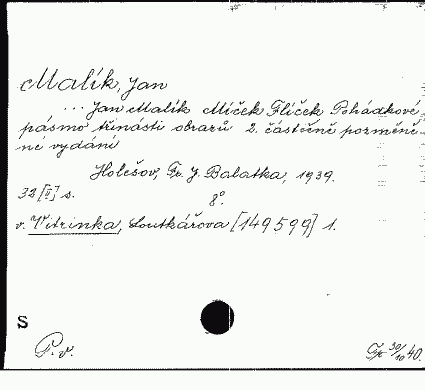 Malík, Jan
... Jan Malík Míček Flíček Pohádkové
pásmo třinásti obrazů 2. částečně pozměně-
né vydání
Holešov, Fr. J. Balatka, 1939.
32 [II] s. 8°.
v. Vitrinka, Loutkářova [149599] 1.
S
P. v. 30/10 40.